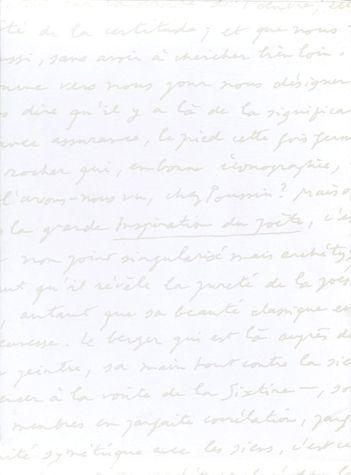 té de la certitude ; et que nous
ussi, sans avoir à chercher bien loin.
vers nous pour nous désigner
dire qu'il y a là de la significa
avec assurance, le pied cette fois ferm
rocher qui, en bonne iconographie,
l'avons-nous vu, chez Poussin ? Mais o
la grande Inspiration du poète, c'es
non point singularisé mais archéty
nt qu'il révèle la pureté de la poés
, autant que sa beauté classique en
Le berger qui est là auprès de
peintre, sa main tout contre la sie
nser à la voûte de la Sixtine —, so
membres en parfaite corrélation, jam
ité symétrique avec les siens, c'est ce